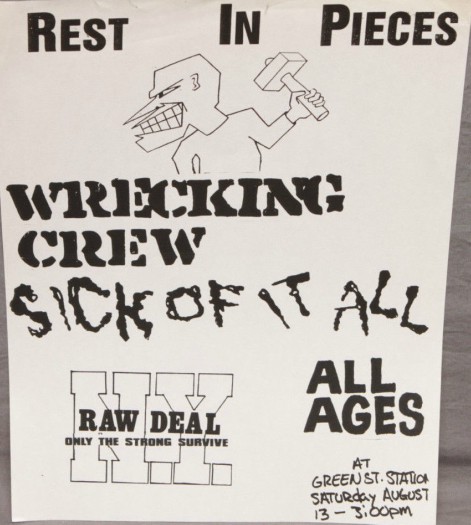 REST IN PIECES
WRECKING
CREW
SICK OF IT ALL
N.Y.
RAW DEAL
ONLY THE STRONG SURVIVE
ALL
AGES
AT
GREEN ST. STATION
SATURDAY AUGUST
13 - 3:00PM